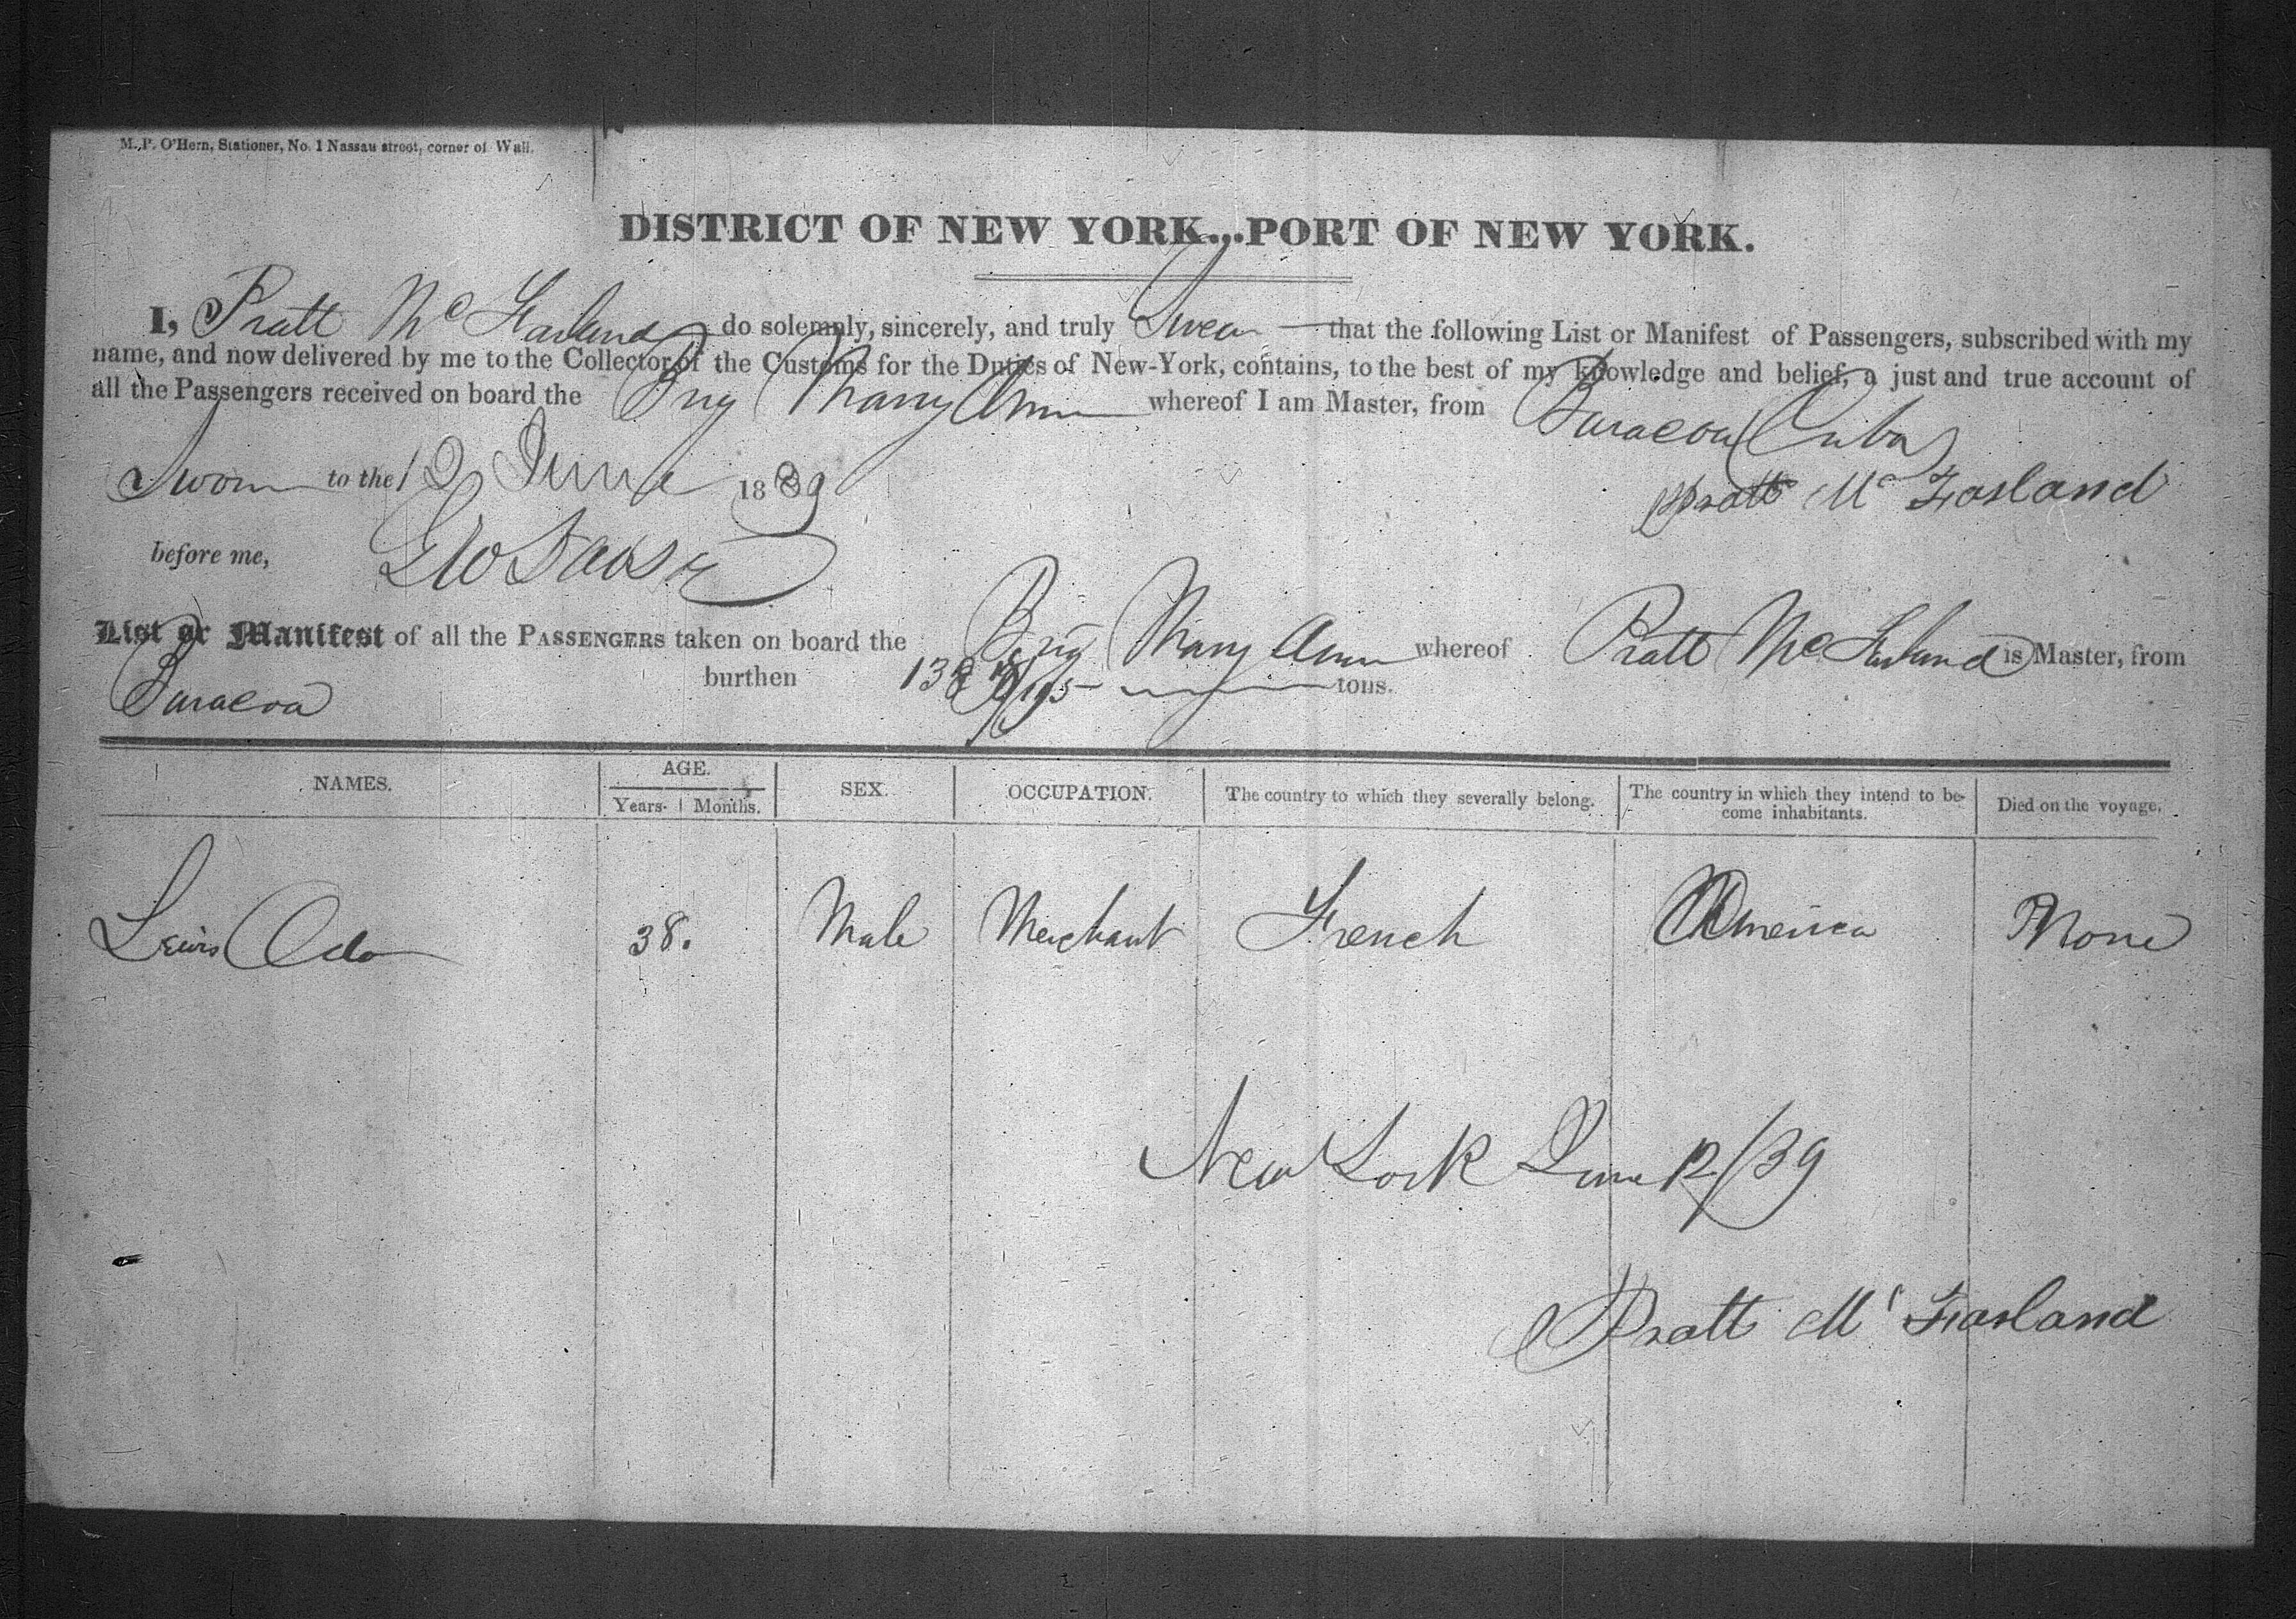 M. P. O'Hern, Stationer, No. 1 Nassau street, corner of Wall.
DISTRICT OF NEW YORK...PORT OF NEW YORK.
I, Pratt Mc Farland do solemnly, sincerely, and truly Swear that the following List or Manifest of Passengers, subscribed with my
name, and now delivered by me to the Collector of the Customs for the Duties of New-York, contains, to the best of my knowledge and belief, a just and true account of
all the Passengers received on board the Brig Mary Ann whereof I am Master, from Baracoa Cuba
Sworn to the 12 June 1839
Pratt Mc Farland
before me,
List or Manifest of all the PASSENGERS taken on board the Brig Mary Ann whereof Pratt Mc Farland is Master, from
Baracoa burthen tons.
NAMES. AGE. Years. Months. SEX. OCCUPATION. The country to which they severally belong. The country in which they intend to be-come inhabitants. Died on the voyage.
Lewis Odo 38. Male Merchant French America None
New York June 12/39
Pratt Mc Farland